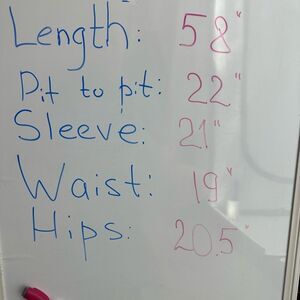 Length: 58"
Pit to pit: 22"
Sleeve: 21"
Waist: 19"
Hips: 20.5"